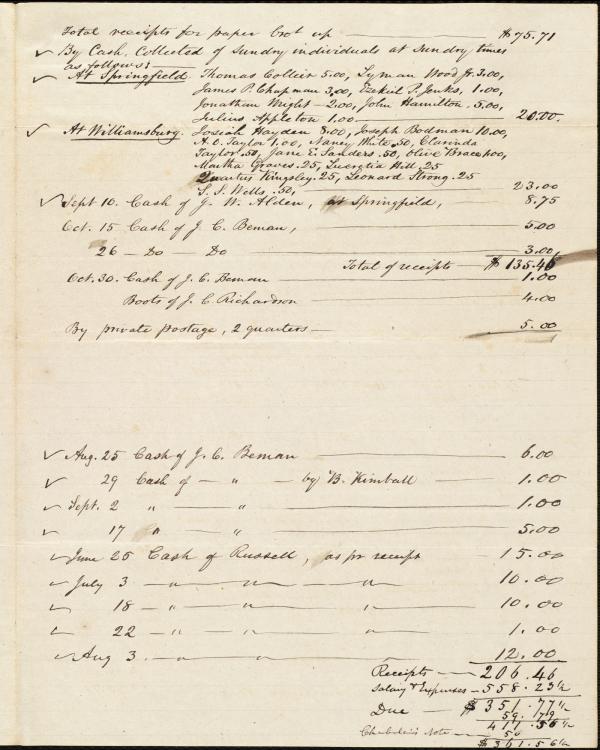 Total receipts for paper bro't up — $75.71
✓ By Cash, Collected of Sundry individuals at sundry times
as follows: —
✓ At Springfield. Thomas Collier 5.00, Lyman Wood Jr. 3.00,
James P. Chapman 3.00, Ezekiel P. Jenks, 1.00,
Jonathan Wright — 2.00, John Hamilton. 5.00,
Julius Appleton 1.00 — 20.00.
✓ At Williamsburg. Josiah Hayden 8.00, Joseph Bodman 10.00,
A. O. Taylor 1.00, Nancy White .50, Clarinda
Taylor .50, Jane E. Sanders .50, Olive 1.00,
Martha Graves .25, Lucretia Hill .25
Quartus Kingsley .25, Leonard Strong .25
S. S. Wells .50, — 23.00
✓ Sept 10. Cash of J. W. Alden, at Springfield, 8.75
Oct. 15 Cash of J. C. Beman, — 5.00
26 — Do — Do — 3.00
Total of receipts — $135.46
Oct. 30. Cash of J. C. Beman — 1.00
Boots of J. C. Richardson — 4.00
By private postage, 2 quarters — 5.00
✓ Aug. 25 Cash of J. C. Beman — 6.00
✓ 29 Cash of — " — by B. Kimball — 1.00
✓ Sept. 2 " — " — 1.00
✓ 17 " — " — 5.00
✓ June 25 Cash of Russell, as pr receipt — 15.00
✓ July 3 — " — " — " — 10.00
✓ 18 — " — " — " — 10.00
✓ 22 — " — " — " — 1.00
✓ Aug 3. — " — " — " — 12.00
Receipts — 206.46
Salary & Expenses — 558.23½
Due — $351.77½
59.79
411.56½
Note — 50
$361.56½